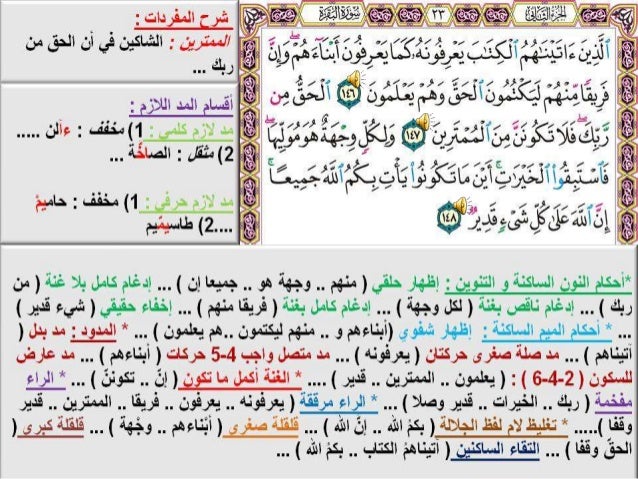 شرح المفردات :
الممترين : الشاكين في أن الحق من
ربك ...
أقسام المد اللازم :
مد لازم كلمي : 1) مخفف : ءآلن .....
2) مثقل : الصاخّة ...
مد لازم حرفي : 1) مخفف : حاميمْ
....2) طاسيمّيم
الجزء الثاني ٢٣ سورة البقرة
ٱلَّذِينَ ءَاتَيْنَٰهُمُ ٱلْكِتَٰبَ يَعْرِفُونَهُۥ كَمَا يَعْرِفُونَ أَبْنَآءَهُمْ وَإِنَّ
فَرِيقًا مِّنْهُمْ لَيَكْتُمُونَ ٱلْحَقَّ وَهُمْ يَعْلَمُونَ ١٤٦ ٱلْحَقُّ مِن
رَّبِّكَ فَلَا تَكُونَنَّ مِنَ ٱلْمُمْتَرِينَ ١٤٧ وَلِكُلٍّ وِجْهَةٌ هُوَ مُوَلِّيهَا
فَٱسْتَبِقُوا۟ ٱلْخَيْرَٰتِ أَيْنَ مَا تَكُونُوا۟ يَأْتِ بِكُمُ ٱللَّهُ جَمِيعًا
إِنَّ ٱللَّهَ عَلَىٰ كُلِّ شَىْءٍ قَدِيرٌ ١٤٨
*أحكام النون الساكنة و التنوين : إظهار حلقي ( منهم .. وجهة هو .. جميعا إن ) ... إدغام كامل بلا غنة ( من
ربك ) ... إدغام ناقص بغنة ( لكل وجهة ) ... إدغام كامل بغنة ( فريقا منهم ) ... إخفاء حقيقي ( شيء قدير )
... * أحكام الميم الساكنة : إظهار شفوي (أبناءهم و .. منهم ليكتمون .. هم يعلمون ) ... * المدود : مد بدل (
آتيناهم ) ... مد صلة صغرى حركتان ( يعرفونه ) ... مد متصل واجب 4-5 حركات ( أبناءهم ) ... مد عارض
للسكون ( 2-4-6 ) : ( يعلمون .. الممترين .. قدير ) .... * الغنة أكمل ما تكون ( إنّ .. تكوننّ ) ... * الراء
مفخمة ( ربك .. الخيرات .. قدير وصلا ) ... * الراء مرققة ( يعرفونه .. يعرفون .. فريقا .. الممترين .. قدير
وقفا )..... * تغليظ لام لفظ الجلالة ( بكمُ الله .. إنّ الله ) ... قلقلة صغرى ( أبْناءهم .. وجْهة ) ... قلقلة كبرى (
الحقّ وقفا ) ... التقاء الساكنين ( آتيناهمُ الكتاب .. بكمُ الله ) ...